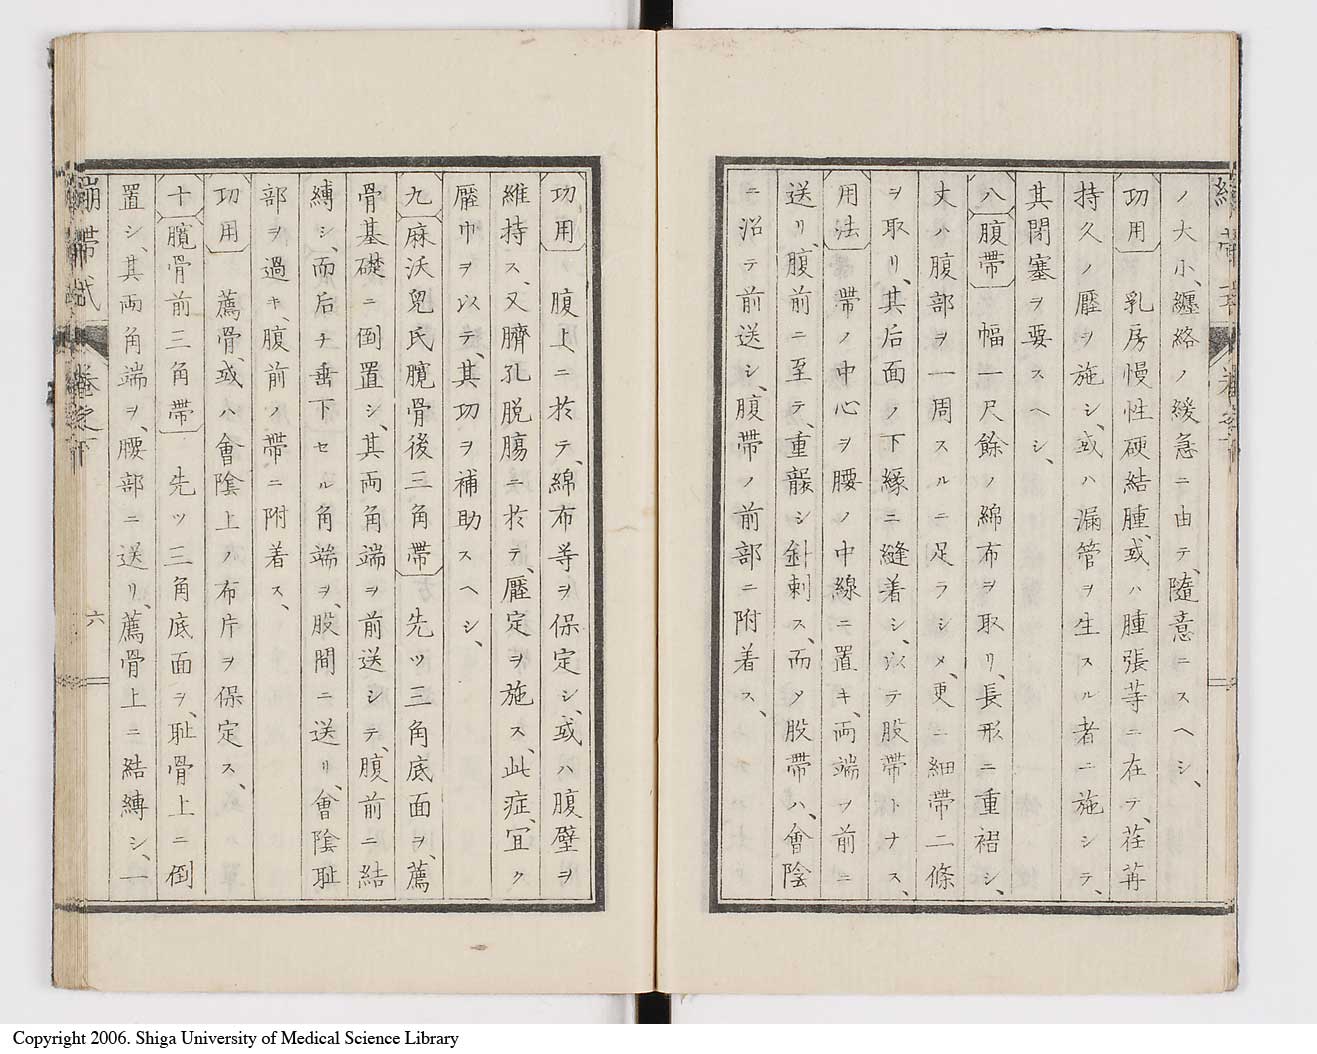 ノ大小、纏絡ノ緩急ニ由テ、隨意ニスヘシ、
功用 乳房慢性硬結腫、或ハ腫張等ニ在テ、荏苒
持久ノ壓ヲ施シ、或ハ漏管ヲ生スル者ニ施シテ、
其閉塞ヲ要スヘシ、
八腹帶 幅一尺餘ノ綿布ヲ取リ、長形ニ重褶シ、
丈ハ腹部ヲ一周スルニ足ラシメ、更ニ細帶二條
ヲ取リ、其后面ノ下緣ニ縫着シ、以テ股帶トナス、
用法 帶ノ中心ヲ腰ノ中線ニ置キ、両端ヲ前ニ
送リ、腹前ニ至テ、重襞シ針刺ス、而〆股帶ハ、會陰
ニ沿テ前送シ、腹帶ノ前部ニ附着ス、
功用 腹上ニ於テ、綿布等ヲ保定シ、或ハ腹壁ヲ
維持ス、又臍孔脱膓ニ於テ、壓定ヲ施ス、此症、冝ク
壓巾ヲ以テ、其功ヲ補助スヘシ、
九麻沃兒氏臗骨後三角帶 先ツ三角底面ヲ、薦
骨基礎ニ倒置シ、其両角端ヲ前送シテ、腹前ニ結
縛シ、而后チ垂下セル角端ヲ、股間ニ送リ、會陰耻
部ヲ過キ、腹前ノ帶ニ附着ス、
功用 薦骨、或ハ會陰上ノ布片ヲ保定ス、
十臗骨前三角帶 先ツ三角底面ヲ、耻骨上ニ倒
置シ、其両角端ヲ、腰部ニ送リ、薦骨上ニ結縛シ、一
繃帶式 卷之下
六
Copyright 2006. Shiga University of Medical Science Library